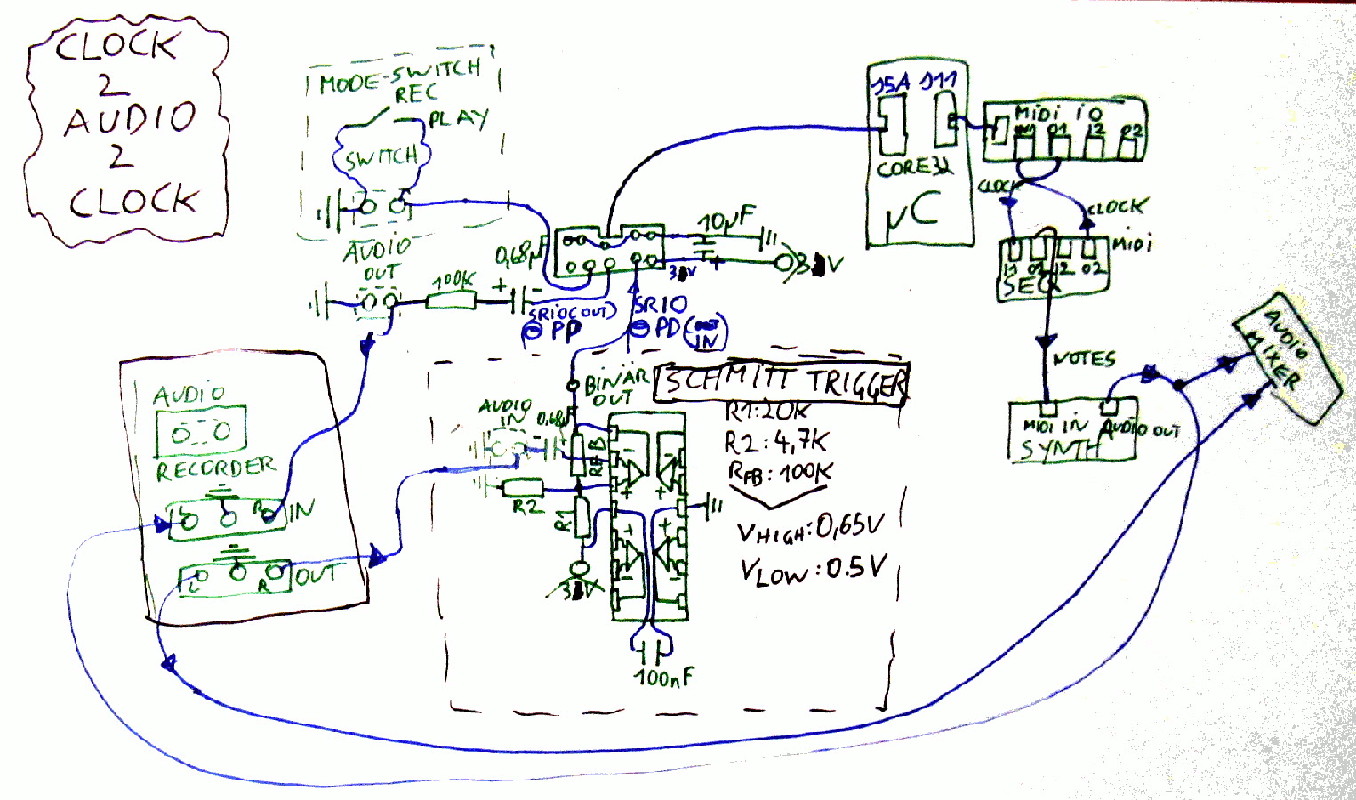 CLOCK
2
AUDIO
2
CLOCK
MODE-SWITCH
REC
PLAY
SWITCH
AUDIO
OUT
100K
+
-
0,68µF
10µF
+
J5A J11
CORE32
µC
MIDI IO
I1 O1 I2 O2
CLOCK
CLOCK
MIDI
I1 O1 I2 O2
SEQ
NOTES
MIDI IN AUDIO OUT
SYNTH
AUDIO
MIXER
SRIO (OUT)
PP
SRIO
PD (IN)
SCHMITT TRIGGER
R1: 20K
R2: 4,7K
RFB: 100K
VHIGH: 0,65V
VLOW: 0.5V
BINAR
OUT
AUDIO
IN
0,68µF
RFB
R2
R1
100nF
AUDIO
RECORDER
L R IN
L R OUT